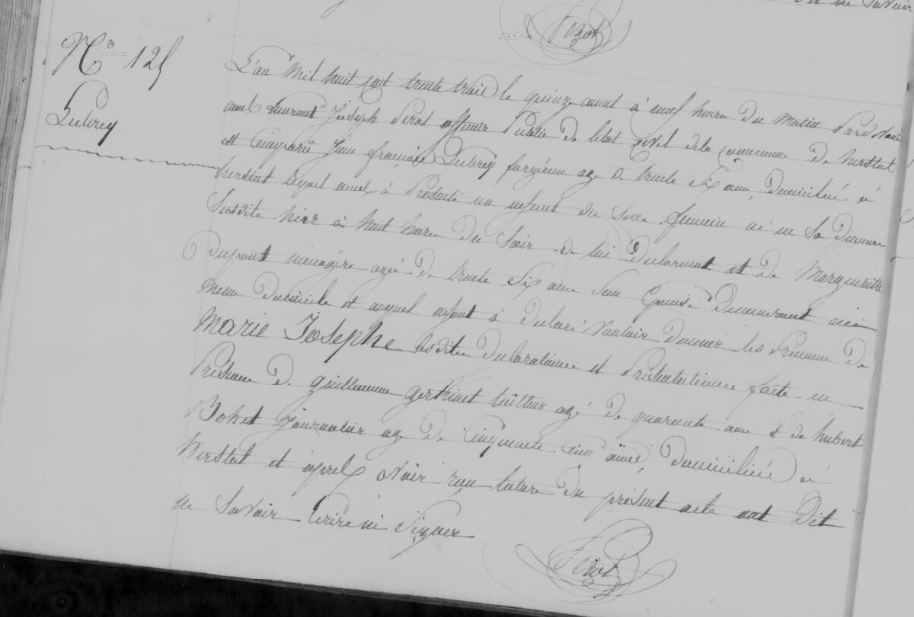 de Savoir
Perot
N° 125
Lulrey
L'an Mil huit cent trente trois le quinze aout à neuf heures du Matin Pardevant
nous Laurent Joseph Perot officier Public de l'état Civil de la commune de Herstal
est Comparu Jean françois age de trente Six ans, domicilié à
herstal lequel nous à Présenté un enfant du Sexe feminin né en Sa Demeure
Susdite hier à huit heure du Soir de lui Declarant et de Marguerite
Dupont menagère agée de trente Six ans Son Epouse Demeurant
meme domicile et auquel enfant à declaré Vouloir Donner les Prenoms de
Marie Josephe lesdites Declarations et Présentations faite en
Présence de guillaume age de quarante ans et de hubert
Bohet Journalier age de Cinquante Cinq année, Domiciliées à
Herstal et après Avoir reçu lecture du présent acte ont Dit
ne Savoir écrire ni Signer
Perot